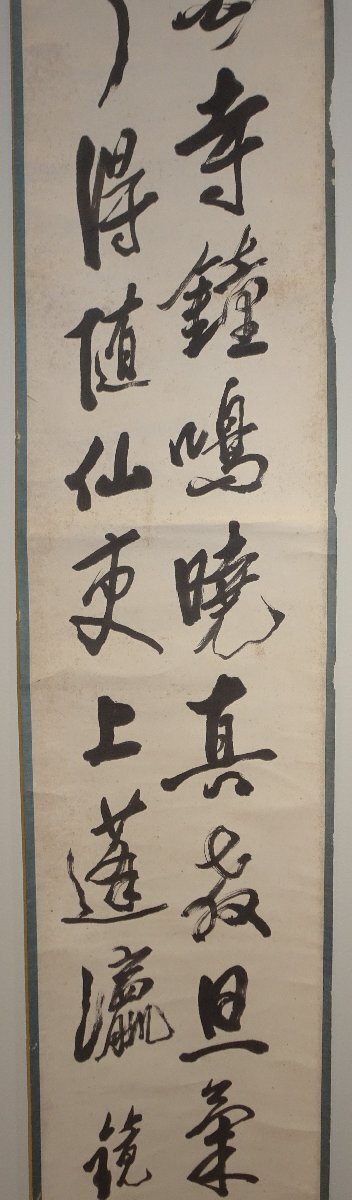 寺鐘鳴曉真教旦氣
得随仙吏上蓬瀛鏡